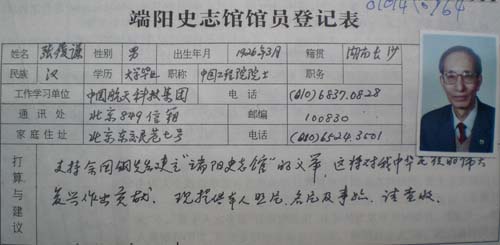 端阳史志馆馆员登记表
姓名 张履谦 性别 男 出生年月 1926年3月 籍贯 湖南长沙
民族 汉 学历 大学毕业 职称 中国工程院院士 职务
工作学习单位 中国航天科技集团 电话 (010)6837.0828
通讯处 北京849信箱 邮编 100830
家庭住址 北京东交民巷七号 电话 (010)6524.3501
打算与建议
支持余国钢先生建立"端阳史志馆"的义举，这将对我中华民族的伟大
复兴作出贡献。现提供本人照片、名片及事迹，请查收。